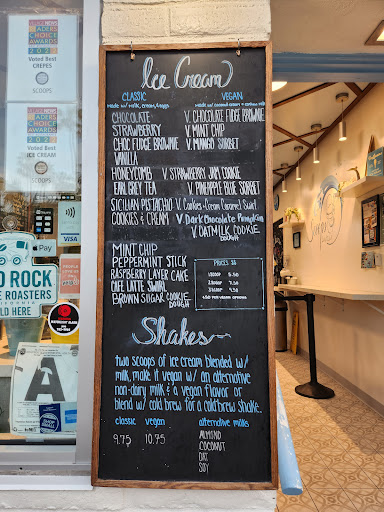 READERS
CHOICE
AWARDS
Voted Best
CREPES
SCOOPS
READERS
CHOICE
AWARDS
Voted Best
ICE CREAM
SCOOPS
Pay
VISA
D ROCK
E ROASTERS
CALIFORNIA
LD HERE
A
Ice Cream
CLASSIC
VEGAN
Made w/ milk, cream, & eggs
CHOCOLATE
V. CHOCOLATE FUDGE BROWNIE
STRAWBERRY
V. MINT CHIP
CHOC FUDGE BROWNIE
V. MANGO SORBET
VANILLA
HONEYCOMB
V. STRAWBERRY JAM COOKIE
EARL GREY TEA
V. PINEAPPLE BLUE SORBET
SICILIAN PISTACHIO
V. Cookies & Cream Caramel Swirl
COOKIES & CREAM
V. Dark Chocolate Pumpkin
V. OATMILK COOKIE
DOUGH
MINT CHIP
PEPPERMINT STICK
RASPBERRY LAYER CAKE
CAFE LATTE SWIRL
BROWN SUGAR COOKIE
DOUGH
PRICES $$
1 SCOOP 5.50
2 SCOOP 7.50
3 SCOOP 9.50
Shakes
two scoops of ice cream blended w/
milk, make it vegan w/ an alternative
non-dairy milk & a vegan flavor or
blend w/ cold brew for a cold brew shake.
classic vegan
alternative milks
9.75 10.75
ALMOND
COCONUT
OAT
SOY